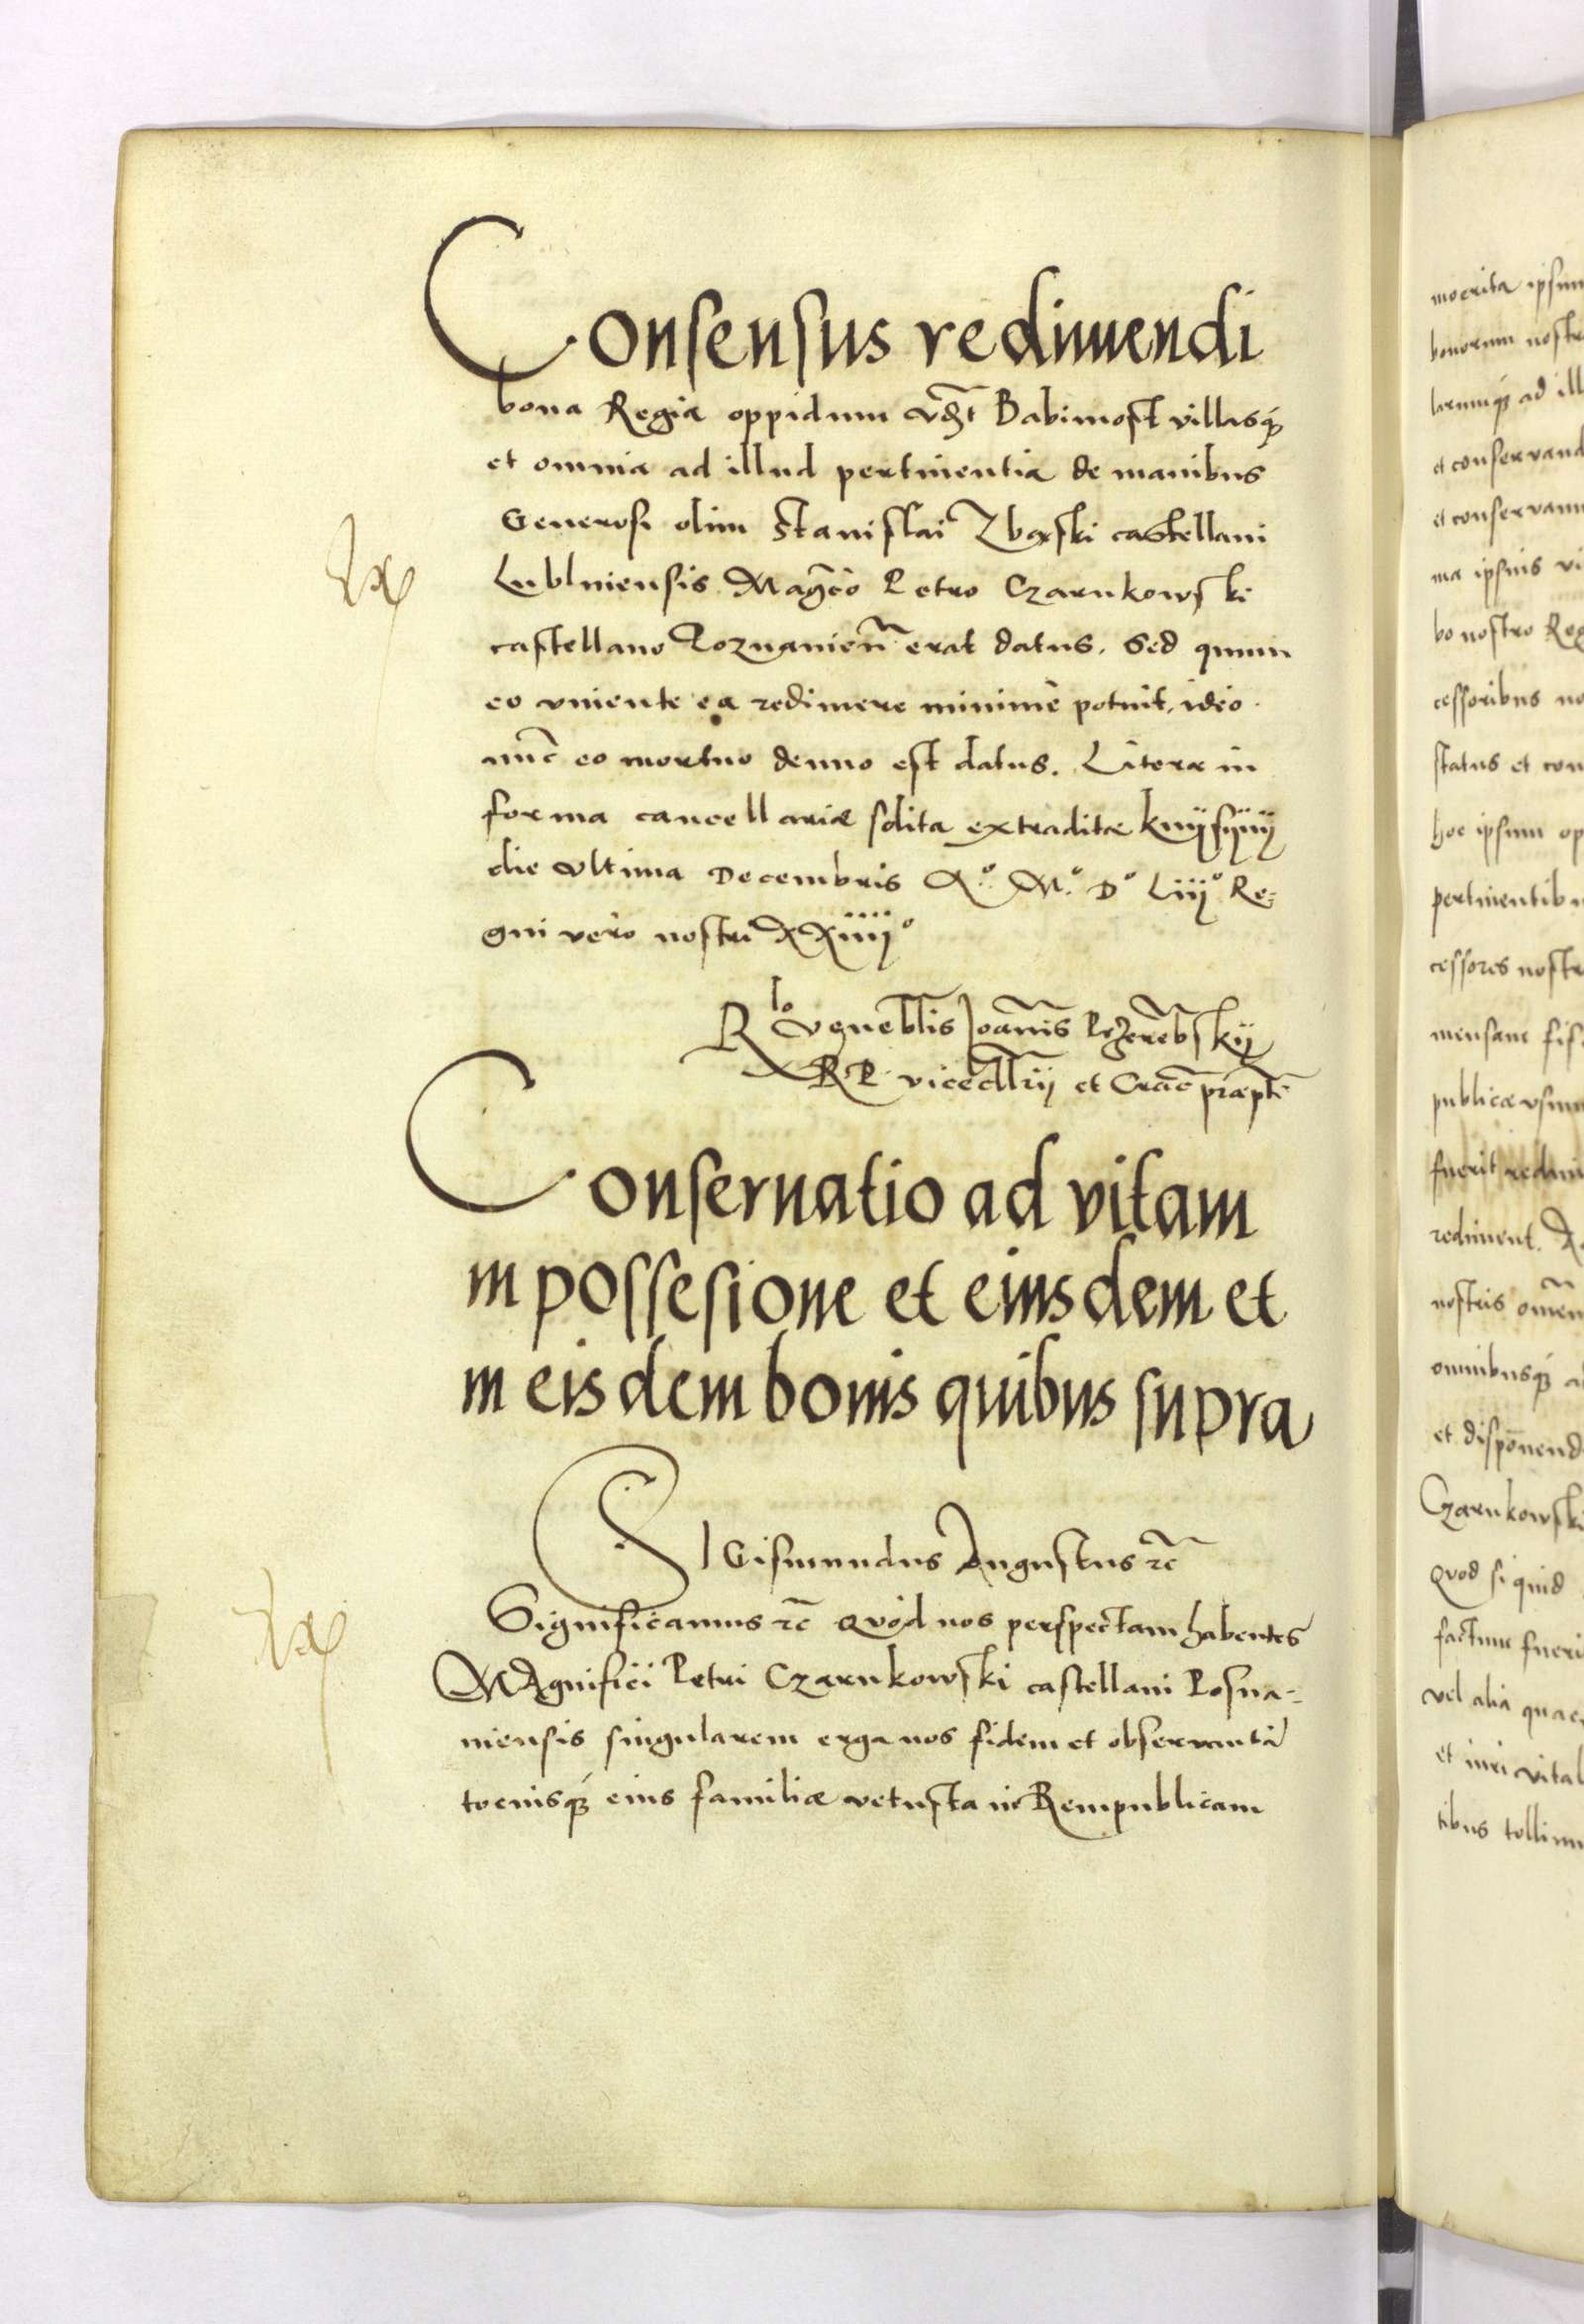 Consensus redimendi
bona Regia oppidum vdȝt Babimost villasqȝ
et omnia ad illud pertinentia de manibus
Generosi olim Stanislai Zbąski castellani
Lublniensis Magco Petro Czarnkowski
castellano Pozwanien erat datus. Sed quum
eo viuente ea redimere minime potuit, ideo
nuc eo mortuo denuo est datus. Literæ in
forma cancellariæ solita extraditæ knÿsÿnÿ
die vltima Decembris A.º M.º Dº Liijº Re=
gni verò nostri XXiiijº
Rlo Veneblis Joanis Przerebskÿ
R P vicecllrij et Crac præpti
Conseruatio ad vitam
in possesione et eiusdem et
in eisdem bonis quibus supra
SIGismundus Augustus rc
Significamus rc Quòd nos perspectam habentes
MAgnifici Petri Czarnkowski castellani Posna=
niensis singularem erga nos fidem et obseruantiã
eius familiæ vetusta in Rempublicam
moerita ipsum
bonorum nostr
larumqȝ ad ill
et conseruand
et conseruamu
ma ipsius vi
bo nostro Reg
cessoribus no
status et con
hoc ipsum op
pertinentibu
cessores nostr
mensane fis
publicæ vsum
fuerit redimi
rediment.
nostris omen
omnibusqȝ a
et disponend
Czarnkowski
Quod si quid
factum fueri
vel alia quac
et iuri vital
tibus tollimu